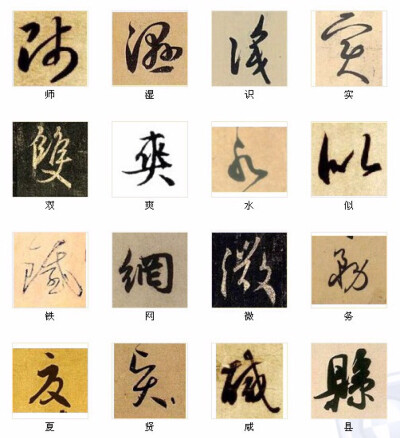 師 濕 識 實
师 湿 识 实
雙 爽 水 似
双 爽 水 似
鐵 網 微 務
铁 网 微 务
夏 賢 縣
夏 贤 咸 县